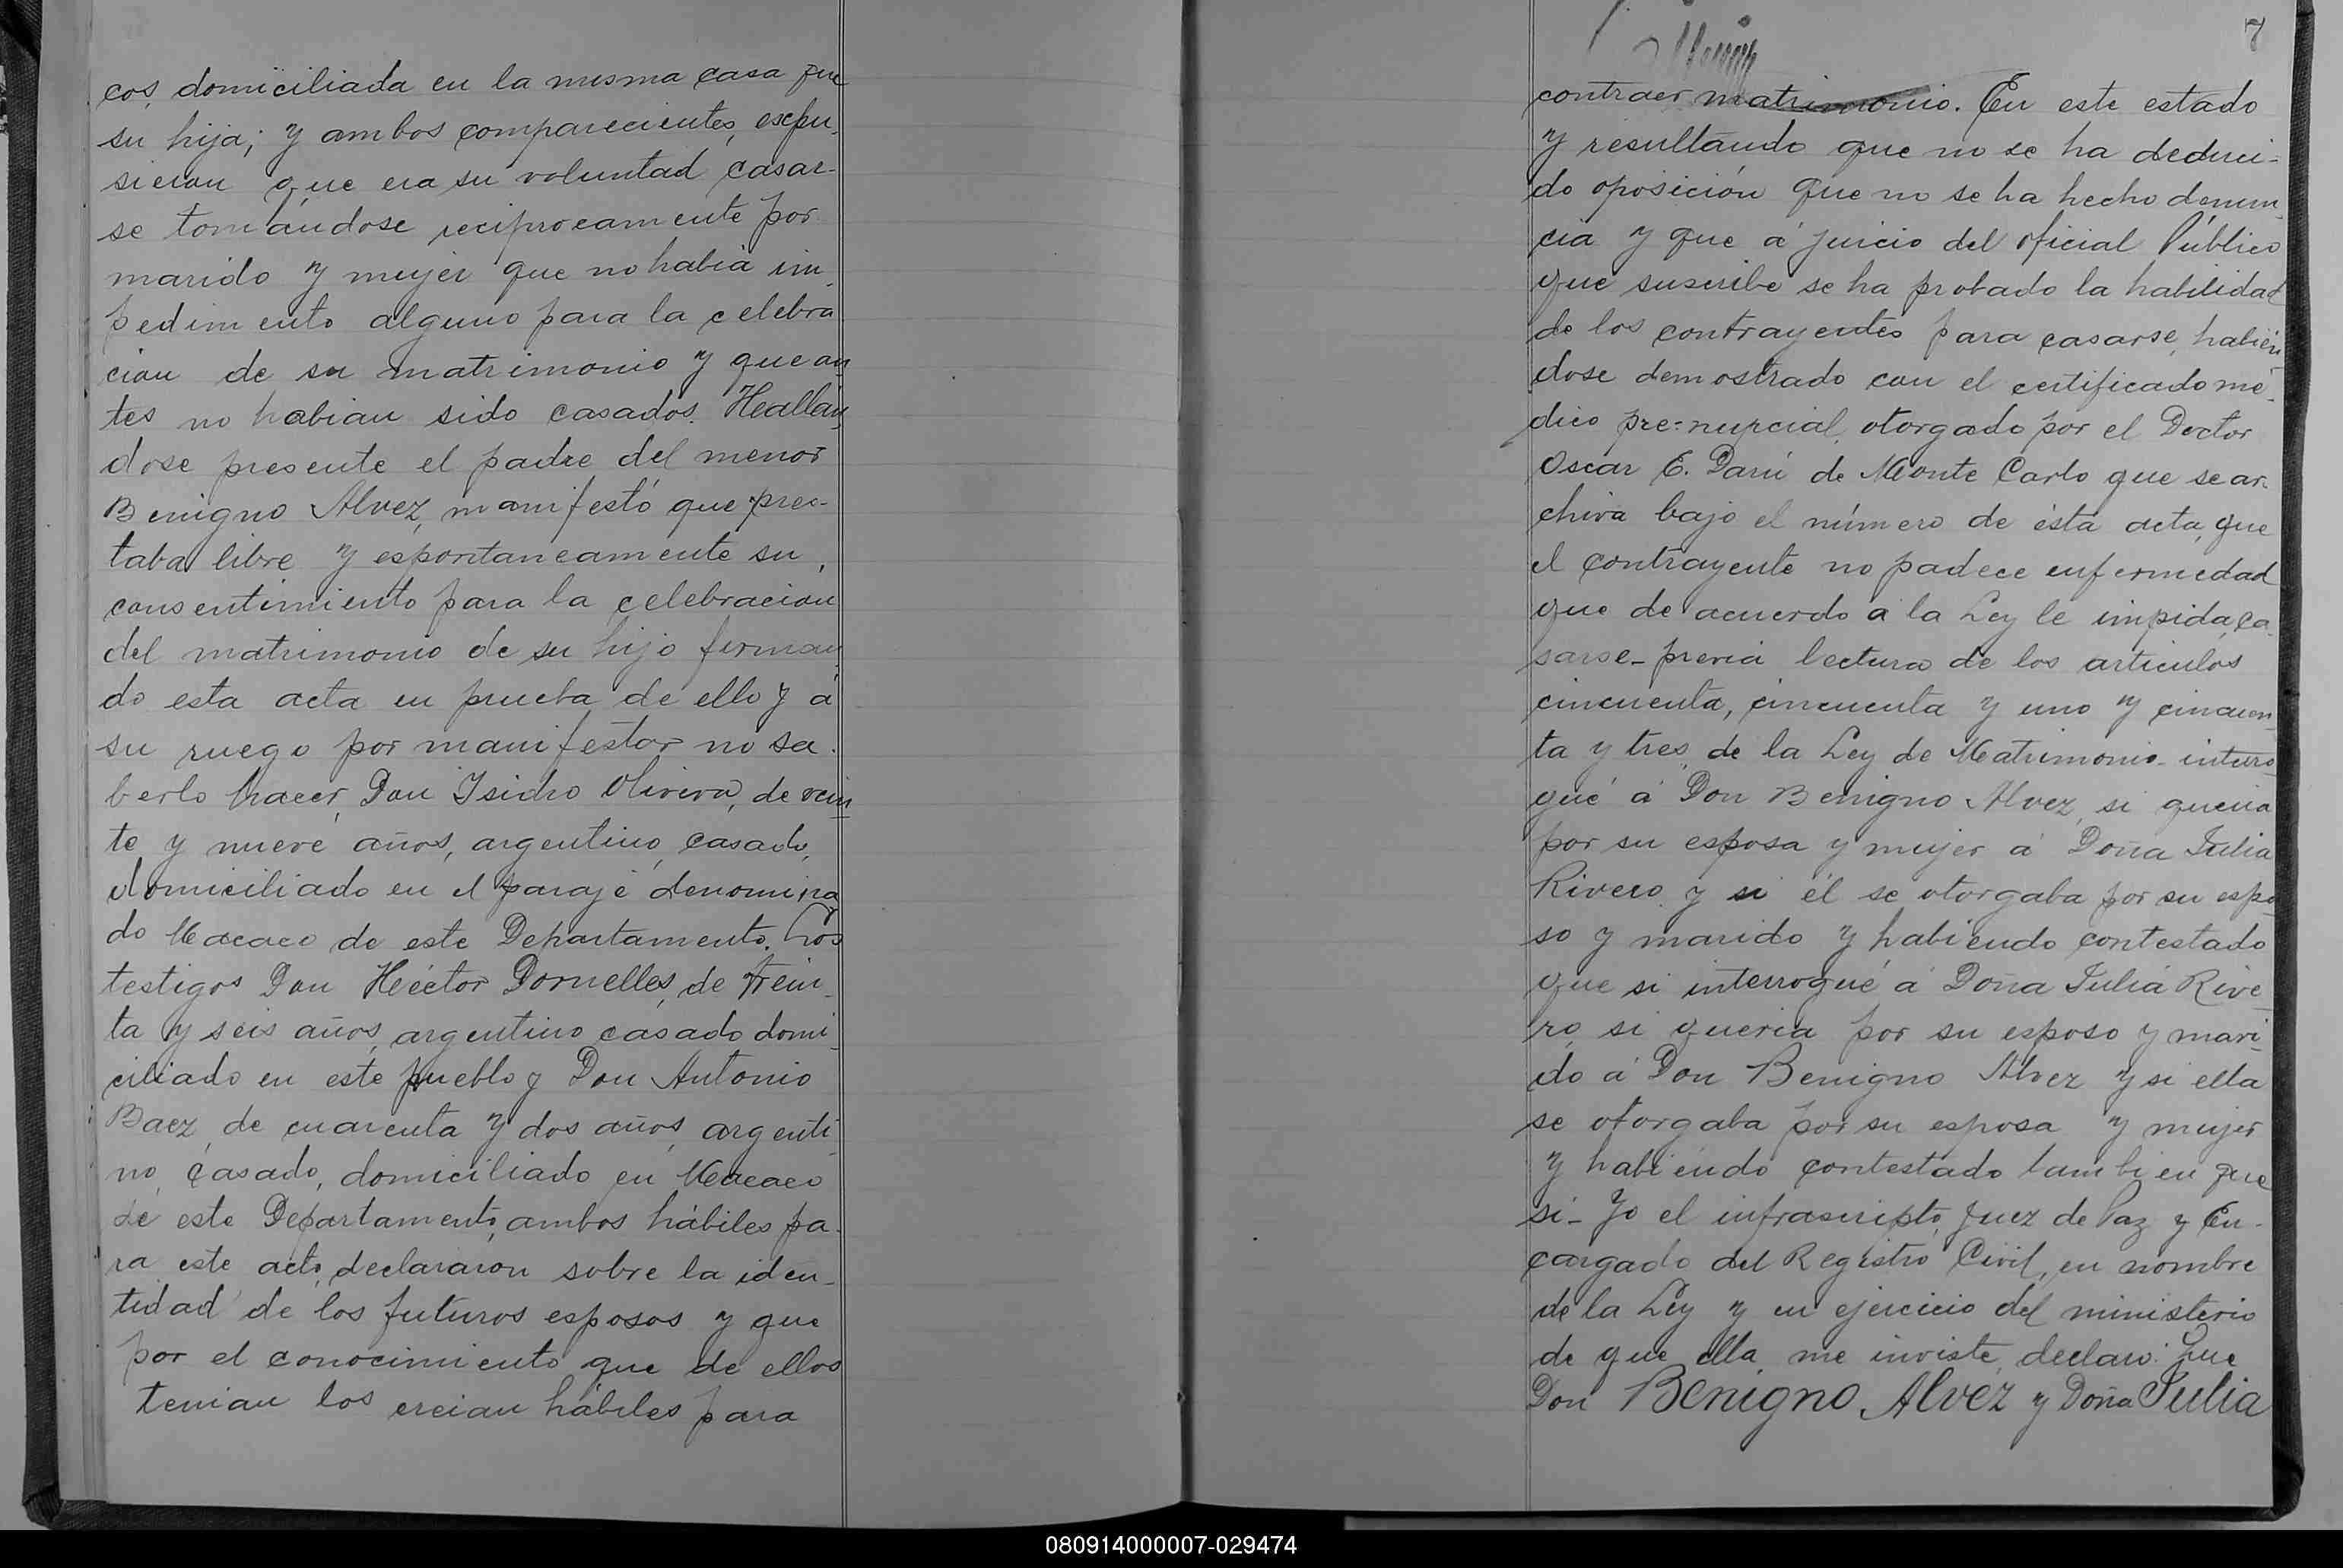 cos, domiciliada en la misma casa que
su hija; y ambos comparecientes, expu-
sieron que era su voluntad casar-
se tomándose reciprocamente por
marido y mujer que no habia im-
pedimento alguno para la celebra
cion de su matrimonio y que an
tes no habian sido casados. Hallan,
dose presente el padre del menor
Benigno Alvez, manifestó que pres-
taba libre y espontaneamente su
consentimiento para la celebracion
del matrimonio de su hijo firman
do esta acta en prueba de ello y á
su ruego por manifestar no sa-
berlo hacer, Don Isidro Olivera, de vein
te y nueve años, argentino, casado,
domiciliado en el paraje denomina
do Macaco de este Departamento. Los
testigos Don Héctor Dornelles, de trein-
ta y seis años, argentino casado domi-
ciliado en este pueblo y Don Antonio
Baez, de cuarenta y dos años, argenti-
no, casado, domiciliado en Macaco
de este Departamento, ambos hábiles pa-
ra este acto, declararon sobre la iden-
tidad de los futuros esposos y que
por el conocimiento que de ellos
tenian los creian hábiles para
7
contraer matrimonio. En este estado
y resultando que no se ha deduci-
do oposición que no se ha hecho denun
cia y que á juicio del oficial Público
que suscribe se ha probado la habilidad
de los contrayentes para casarse, habién
dose demostrado con el certificado mé-
dico pre=nupcial, otorgado por el Doctor
Oscar E. Darú de Monte Carlo que se ar-
chiva bajo el número de ésta acta, que
el contrayente no padece enfermedad
que de acuerdo a la Ley le impida ca-
sarse - previa lectura de los articulos
cincuenta, cincuenta y uno y cincuen
ta y tres de la Ley de Matrimonio - interro-
gué á Don Benigno Alvez, si queria
por su esposa y mujer á Doña Julia
Rivero y si él se otorgaba por su espo-
so y marido y habiendo contestado
que si interrogué á Doña Julia Rive-
ro, si queria por su esposo y mari-
do á Don Benigno Alvez y si ella
se otorgaba por su esposa y mujer
y habiendo contestado tambien que
si - Yo el infrascripto, Juez de Paz y En-
cargado del Registro Civil, en nombre
de la Ley y en ejercicio del ministerio
de que ella me inviste, declaro: Que
Don Benigno Alvez y Doña Julia
080914000007-029474